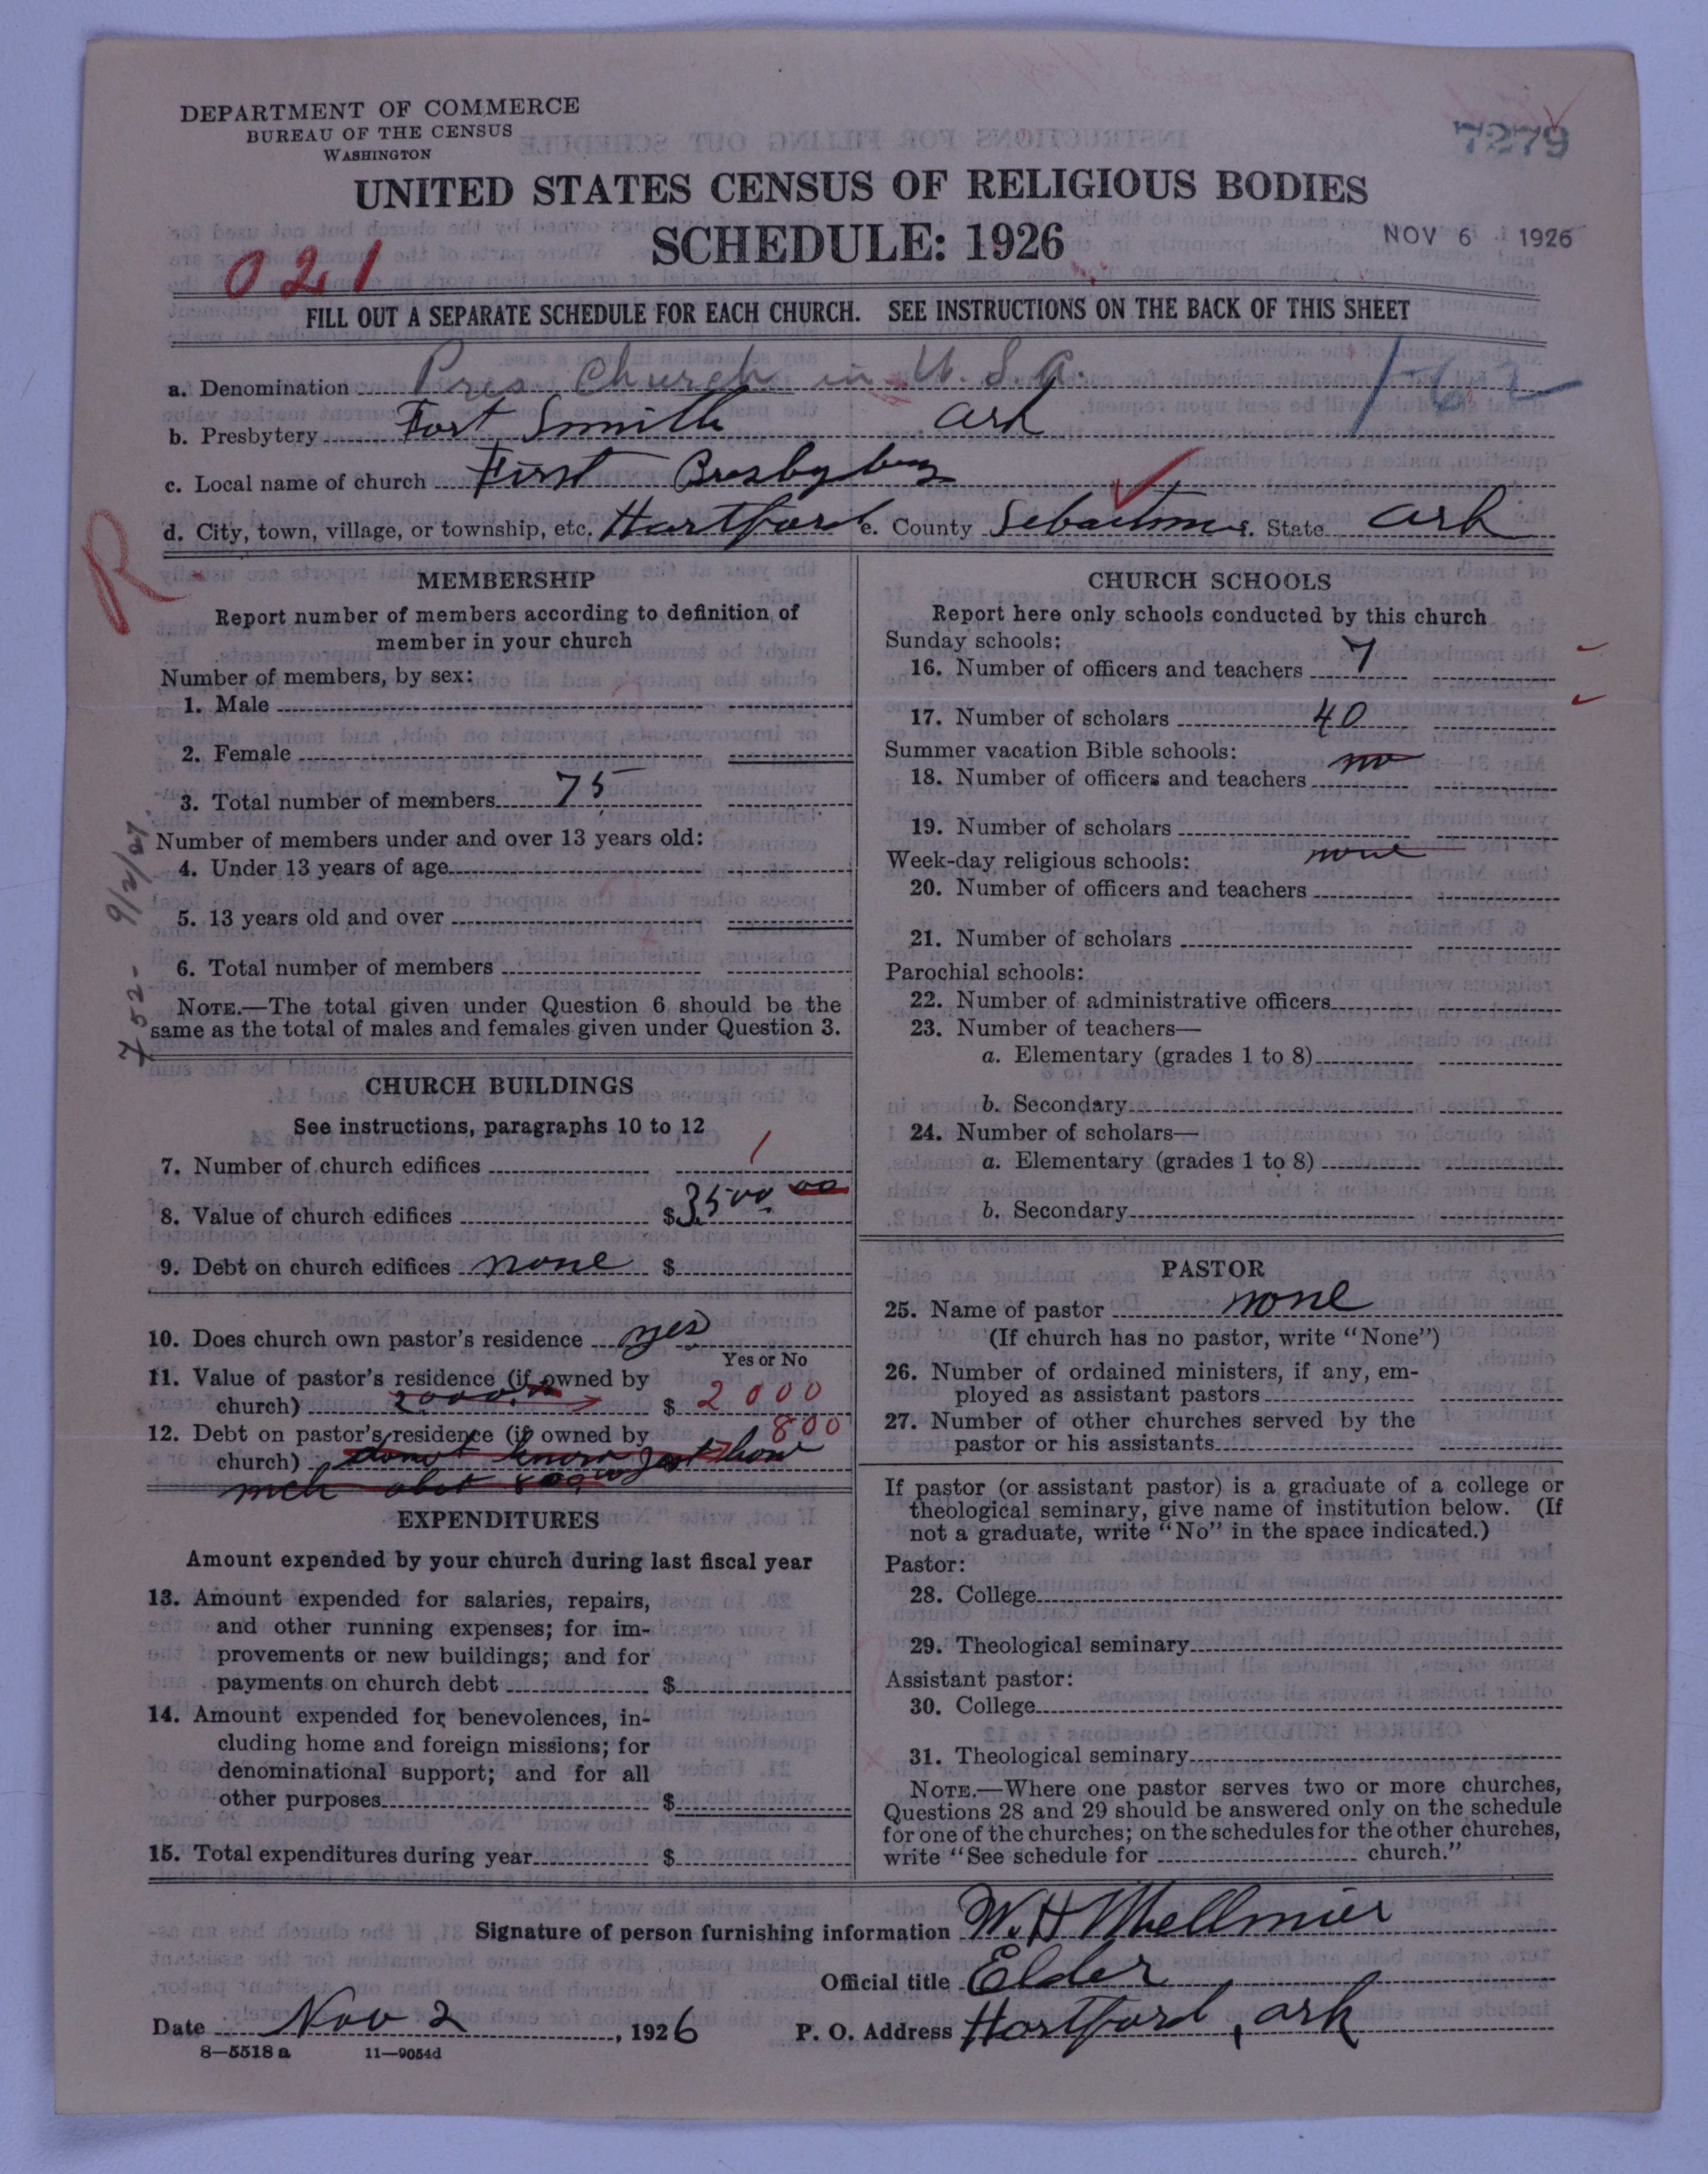 DEPARTMENT OF COMMERCE
BUREAU OF THE CENSUS
WASHINGTON
7279
UNITED STATES CENSUS OF RELIGIOUS BODIES
SCHEDULE: 1926
NOV 6 1926
021
FILL OUT A SEPARATE SCHEDULE FOR EACH CHURCH. SEE INSTRUCTIONS ON THE BACK OF THIS SHEET
a. Denomination Pres Church in U.S.A.
b. Presbytery Fort Smith Ark
c. Local name of church First
d. City, town, village, or township, etc. Hartford e. County Sebastian f. State Ark
R
MEMBERSHIP
Report number of members according to definition of
member in your church
Number of members, by sex:
1. Male
2. Female
3. Total number of members 75
Number of members under and over 13 years old:
4. Under 13 years of age
5. 13 years old and over
6. Total number of members
NOTE.—The total given under Question 6 should be the
same as the total of males and females given under Question 3.
752- 9/2/27
CHURCH BUILDINGS
See instructions, paragraphs 10 to 12
7. Number of church edifices 1
8. Value of church edifices $3500 00
9. Debt on church edifices none $
10. Does church own pastor's residence yes
Yes or No
11. Value of pastor's residence (if owned by
church) 2000 $ 2000
12. Debt on pastor's residence (if owned by 800
church) dont know just how
mch abot 800
EXPENDITURES
Amount expended by your church during last fiscal year
13. Amount expended for salaries, repairs,
and other running expenses; for im-
provements or new buildings; and for
payments on church debt $
14. Amount expended for benevolences, in-
cluding home and foreign missions; for
denominational support; and for all
other purposes $
15. Total expenditures during year $
CHURCH SCHOOLS
Report here only schools conducted by this church
Sunday schools:
16. Number of officers and teachers 7
17. Number of scholars 40
Summer vacation Bible schools: no
18. Number of officers and teachers
19. Number of scholars
Week-day religious schools: none
20. Number of officers and teachers
21. Number of scholars
Parochial schools:
22. Number of administrative officers
23. Number of teachers—
a. Elementary (grades 1 to 8)
b. Secondary
24. Number of scholars—
a. Elementary (grades 1 to 8)
b. Secondary
PASTOR
25. Name of pastor none
(If church has no pastor, write "None")
26. Number of ordained ministers, if any, em-
ployed as assistant pastors
27. Number of other churches served by the
pastor or his assistants
If pastor (or assistant pastor) is a graduate of a college or
theological seminary, give name of institution below. (If
not a graduate, write "No" in the space indicated.)
Pastor:
28. College
29. Theological seminary
Assistant pastor:
30. College
31. Theological seminary
NOTE.—Where one pastor serves two or more churches,
Questions 28 and 29 should be answered only on the schedule
for one of the churches; on the schedules for the other churches,
write "See schedule for church."
Signature of person furnishing information W. H
Official title Elder
Date Nov 2, 1926 P. O. Address Hartford, Ark
8—5518 a 11—9054d